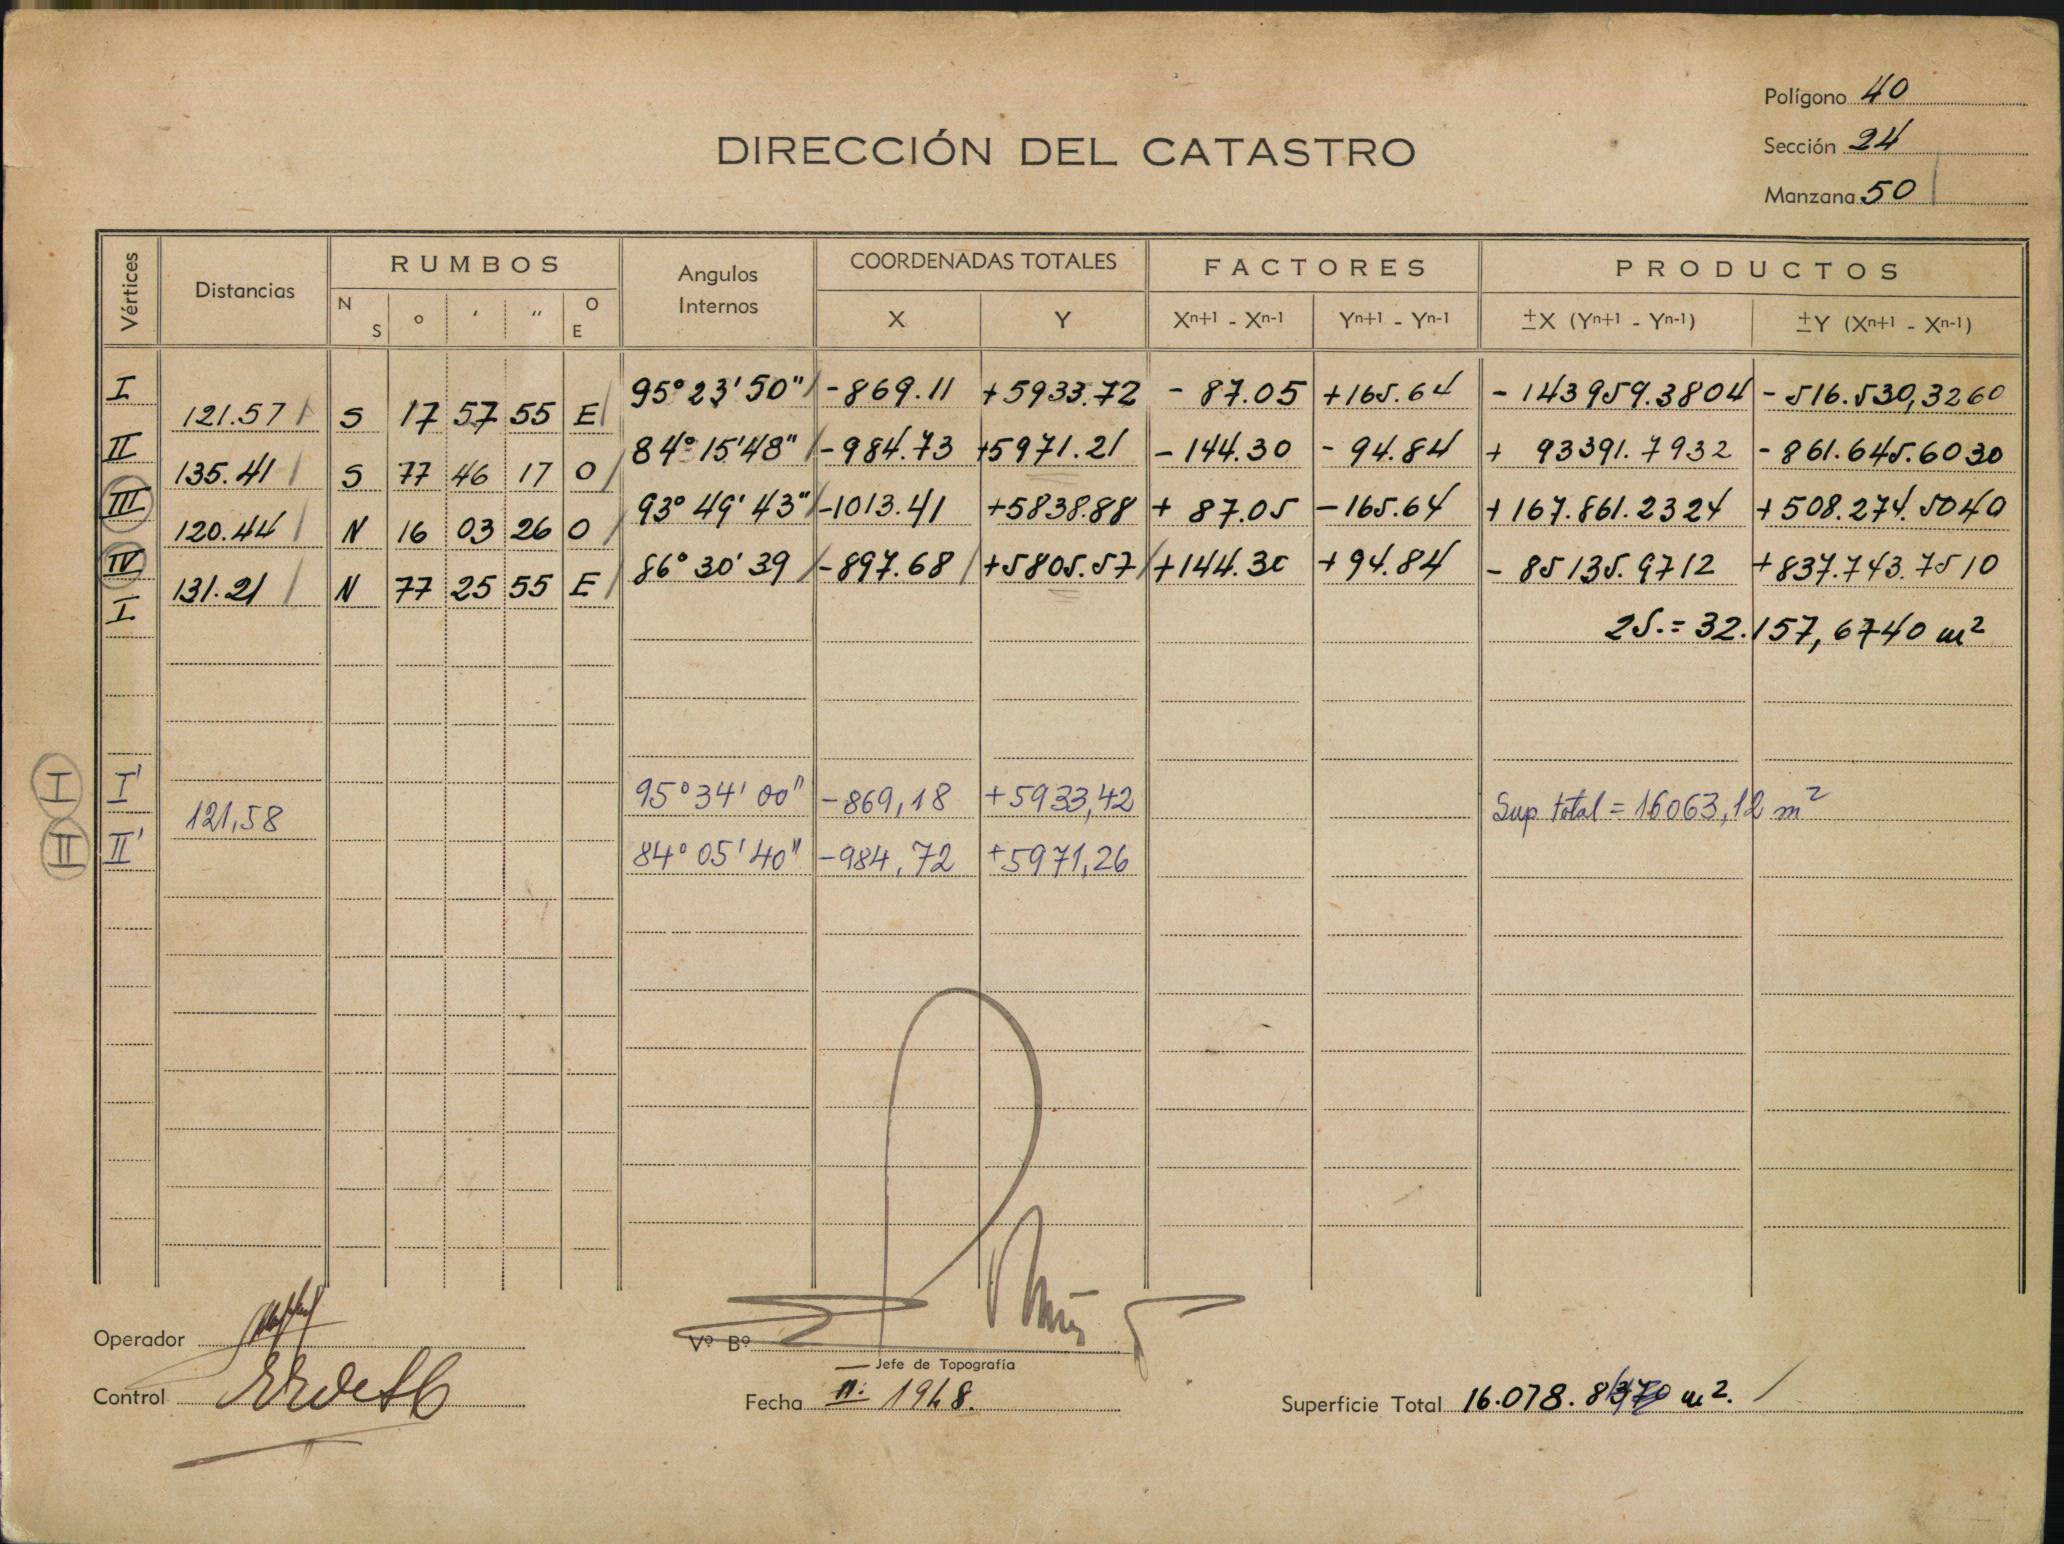 Polígono 40
Sección 24
Manzana 50
DIRECCIÓN DEL CATASTRO
Vértices Distancias RUMBOS Angulos Internos COORDENADAS TOTALES FACTORES PRODUCTOS
N S ° ' " O E X Y Xn+1 - Xn-1 Yn+1 - Yn-1 ±X (Yn+1 - Yn-1) ±Y (Xn+1 - Xn-1)
I 95° 23' 50" -869.11 +5933.72 - 87.05 +165.64 - 143959.3804 - 516.530,3260
121.57 S 17 57 55 E
II 84° 15' 48" -984.73 +5971.21 - 144.30 - 94.84 + 93391.7932 - 861.645.6030
135.41 S 77 46 17 O
III 93° 49' 43" -1013.41 +5838.88 + 87.05 -165.64 +167.861.2324 +508.274.5040
120.44 N 16 03 26 O
IV 86° 30' 39 -897.68 +5805.57 +144.30 +94.84 - 85135.9712 +837.743.7510
131.21 N 77 25 55 E
I
2S.= 32.157,6740 m²
I I' 95° 34' 00" -869,18 +5933,42 Sup total = 16063,12 m²
121,58
II II' 84° 05' 40" -984,72 +5971,26
Operador
Vº Bº
Jefe de Topografía
Control
Fecha II: 1948.
Superficie Total 16.078.8370 m².